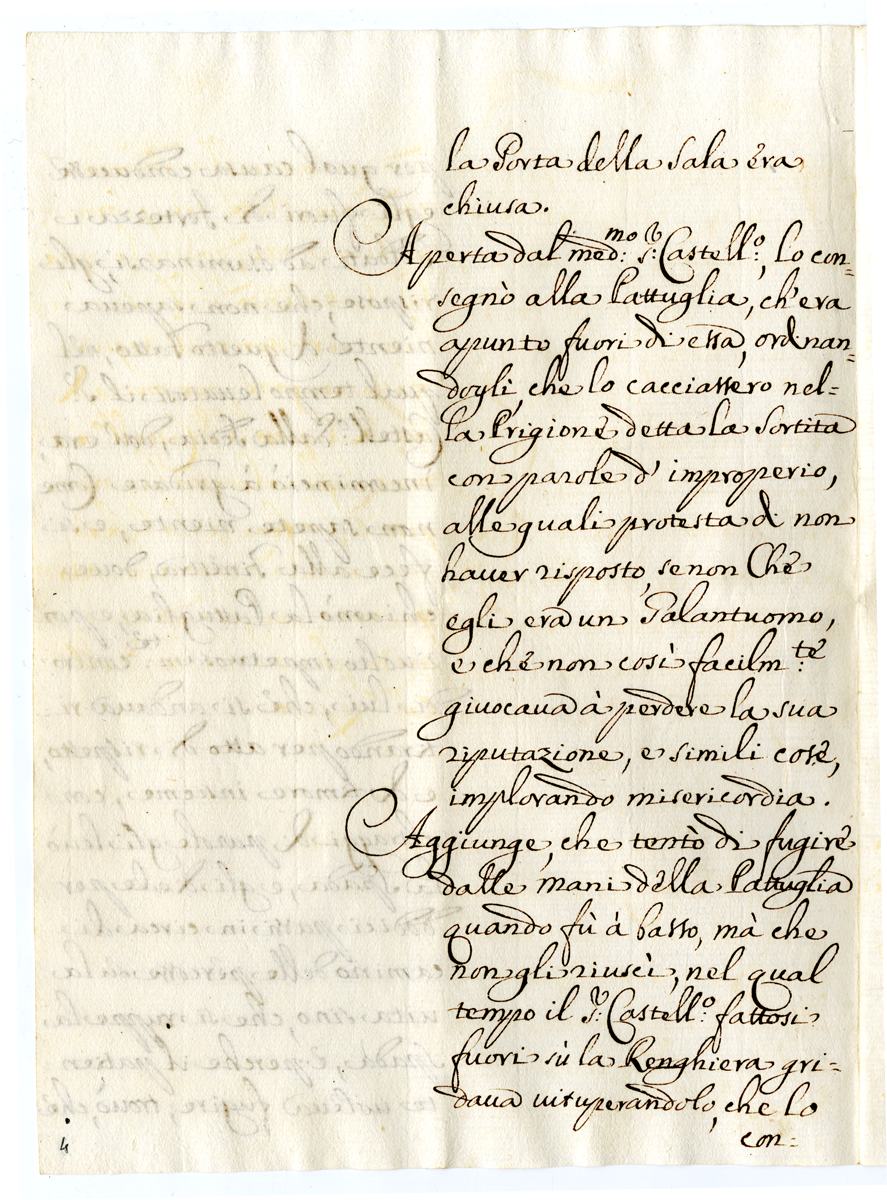 la Porta della Sala èra
chiusa.
Aperta dal med:mo Sr: Castell:o, lo con=
segnò alla Pattuglia, ch'era
apunto fuori di essa, ordinan=
dogli, che lo cacciassero nel=
la Prigione detta la Sortita
con parole d'improperio,
alle quali protesta di non
haver risposto, se non Che
egli era un Galantuomo,
e che non così facilm:te
giuocava à perdere la sua
riputazione, e simili cose,
implorando misericordia.
Aggiunge, che tentò di fugire
dalle mani della Pattuglia
quando fù à basso, mà che
non gli riuscì, nel qual
tempo il Sr: Castell:o fattosi
fuori sù la Renghiera gri=
dava vituperandolo, che lo
con=
4